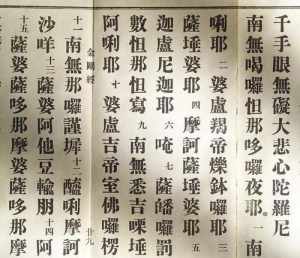 千手千眼大悲心陀羅尼
南無喝囉怛那哆囉夜耶 一 南
唎耶 二 婆盧羯帝爍鉢囉耶 三
薩埵婆耶 四 摩訶薩埵婆耶 五
迦盧尼迦耶 六 唵 七 薩皤囉罰
數怛那怛寫 九 南無悉吉嘌埵
阿唎耶 十 婆盧吉帝室佛囉楞
金剛經 廿九
十一 南無那囉謹墀 十二 醯唎摩訶
沙咩 十三 薩婆阿他豆輸朋 十四 阿
十五 薩婆薩哆那摩婆薩哆那摩